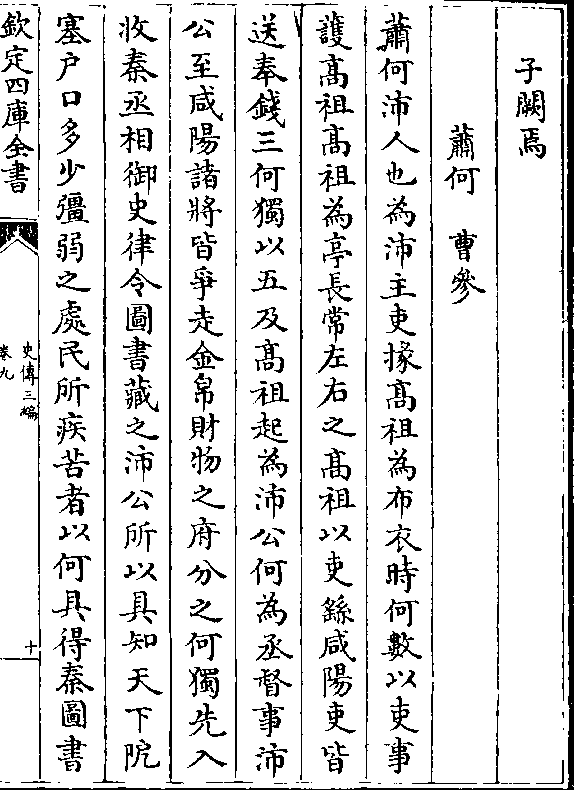 子闕焉
蕭何　曹參
蕭何沛人也為沛主吏掾髙祖為布衣時何數以吏事
護髙祖髙祖為亭長常左右之髙祖以吏繇咸陽吏皆
送奉錢三何獨以五及髙祖起為沛公何為丞督事沛
公至咸陽諸將皆爭走金帛財物之府分之何獨先入
收秦丞相御史律令圖書藏之沛公所以具知天下阸
塞户口多少彊弱之處民所疾苦者以何具得秦圖書
欽定四庫全書
史傳三編
卷九
十